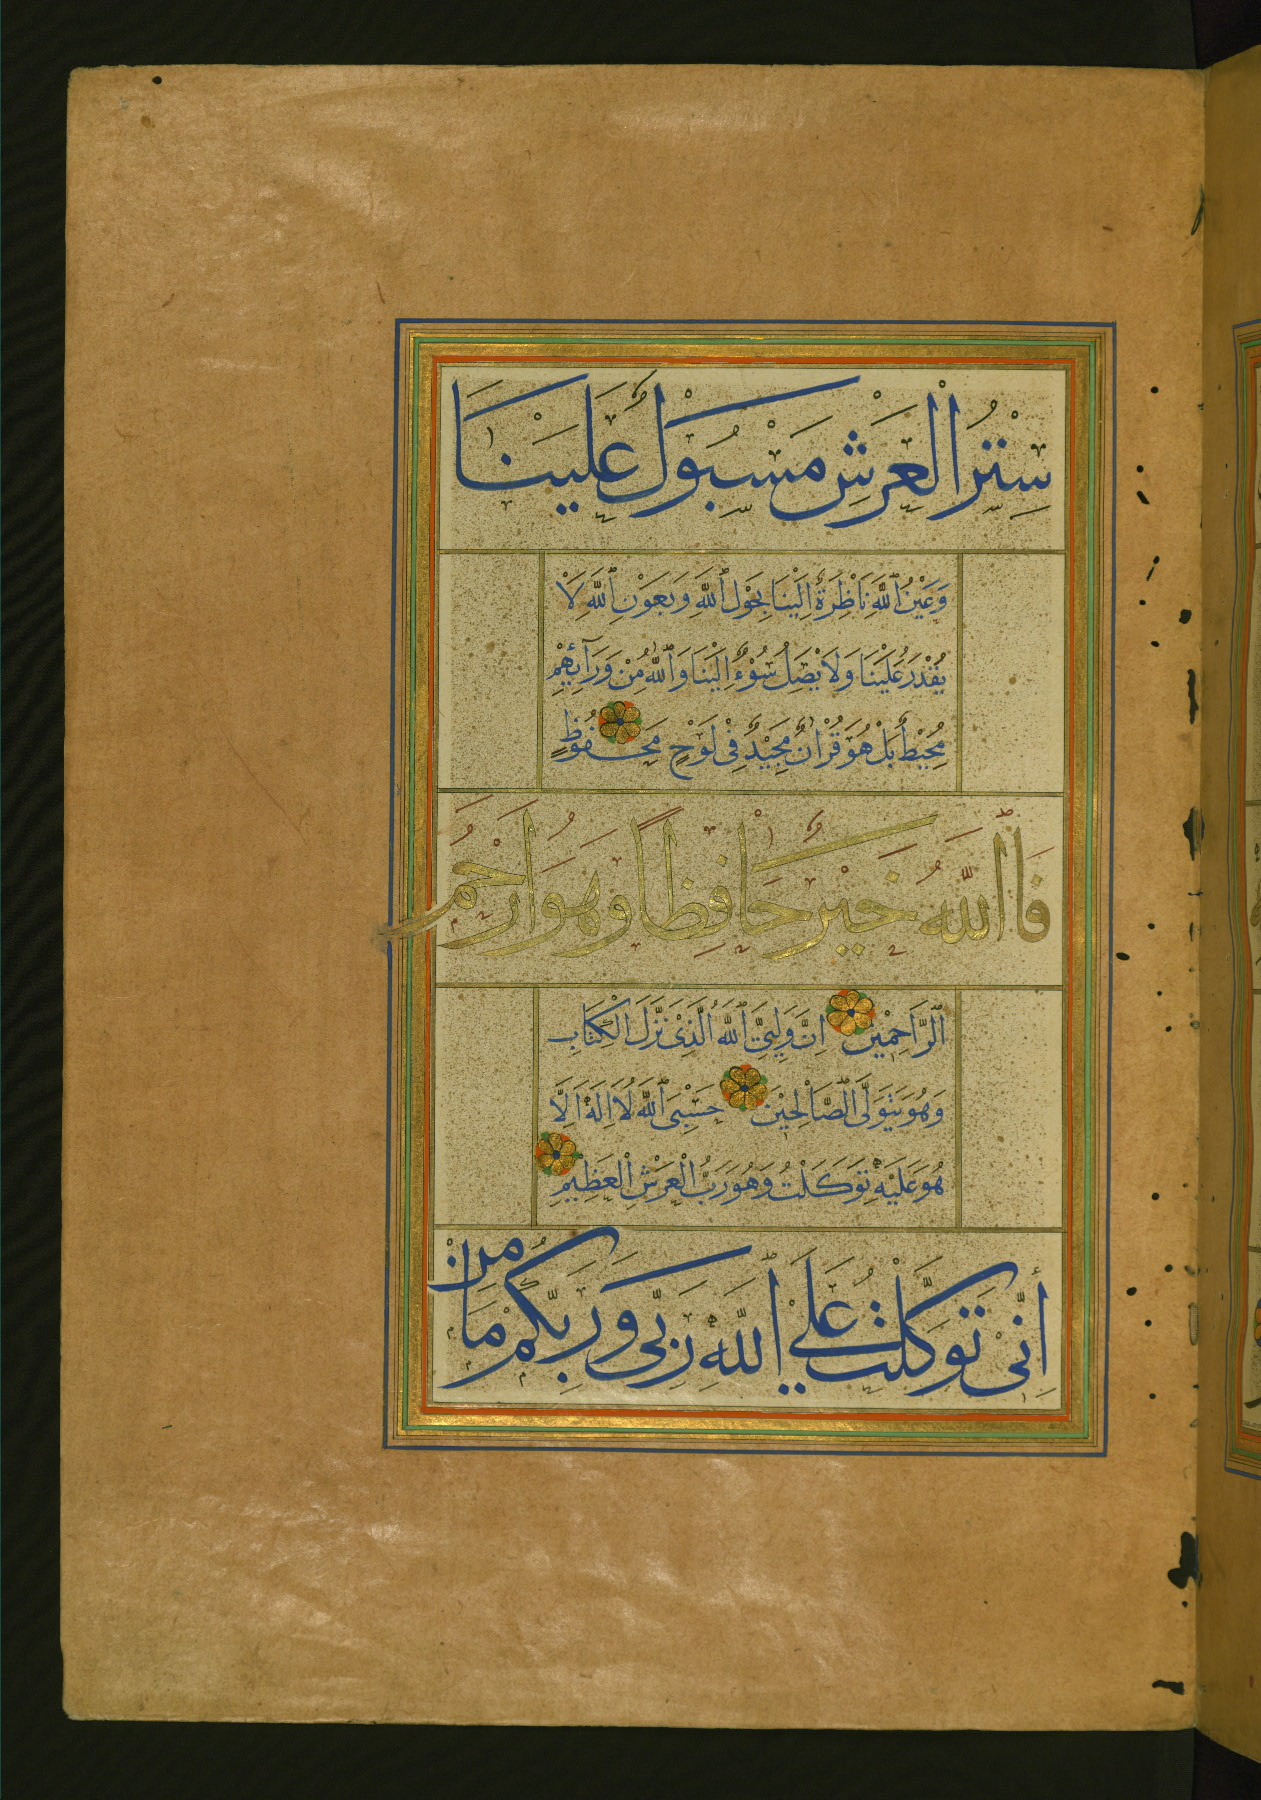 سِتْرُ الْعَرْشِ مَسْبُولٌ عَلَيْنَا
وَعَيْنُ اللَّهِ نَاظِرَةٌ إِلَيْنَا بِحَوْلِ اللَّهِ وَبِعَوْنِ اللَّهِ لَا
يُقْدَرُ عَلَيْنَا وَلَا يَصِلُ سُوْءٌ إِلَيْنَا وَاللَّهُ مِنْ وَرَآئِهِمْ
مُحِيْطٌ بَلْ هُوَ قُرْاٰنٌ مَجِيْدٌ فِي لَوْحٍ مَحْفُوظٍ
فَاللَّهُ خَيْرٌ حَافِظًا وَهُوَ أَرْحَمُ
الرَّاحِمِيْنَ اِنَّ وَلِيِّيَ اللَّهُ الَّذِيْ نَزَّلَ الْكِتَابَ
وَهُوَ يَتَوَلَّى الصَّالِحِيْنَ حَسْبِيَ اللَّهُ لَا اِلَهَ اِلَّا
هُوَ عَلَيْهِ تَوَكَّلْتُ وَهُوَ رَبُّ الْعَرْشِ الْعَظِيْمِ
إِنِّي تَوَكَّلْتُ عَلَى اللَّهِ رَبِّي وَرَبِّكُمْ مَا مِنْ